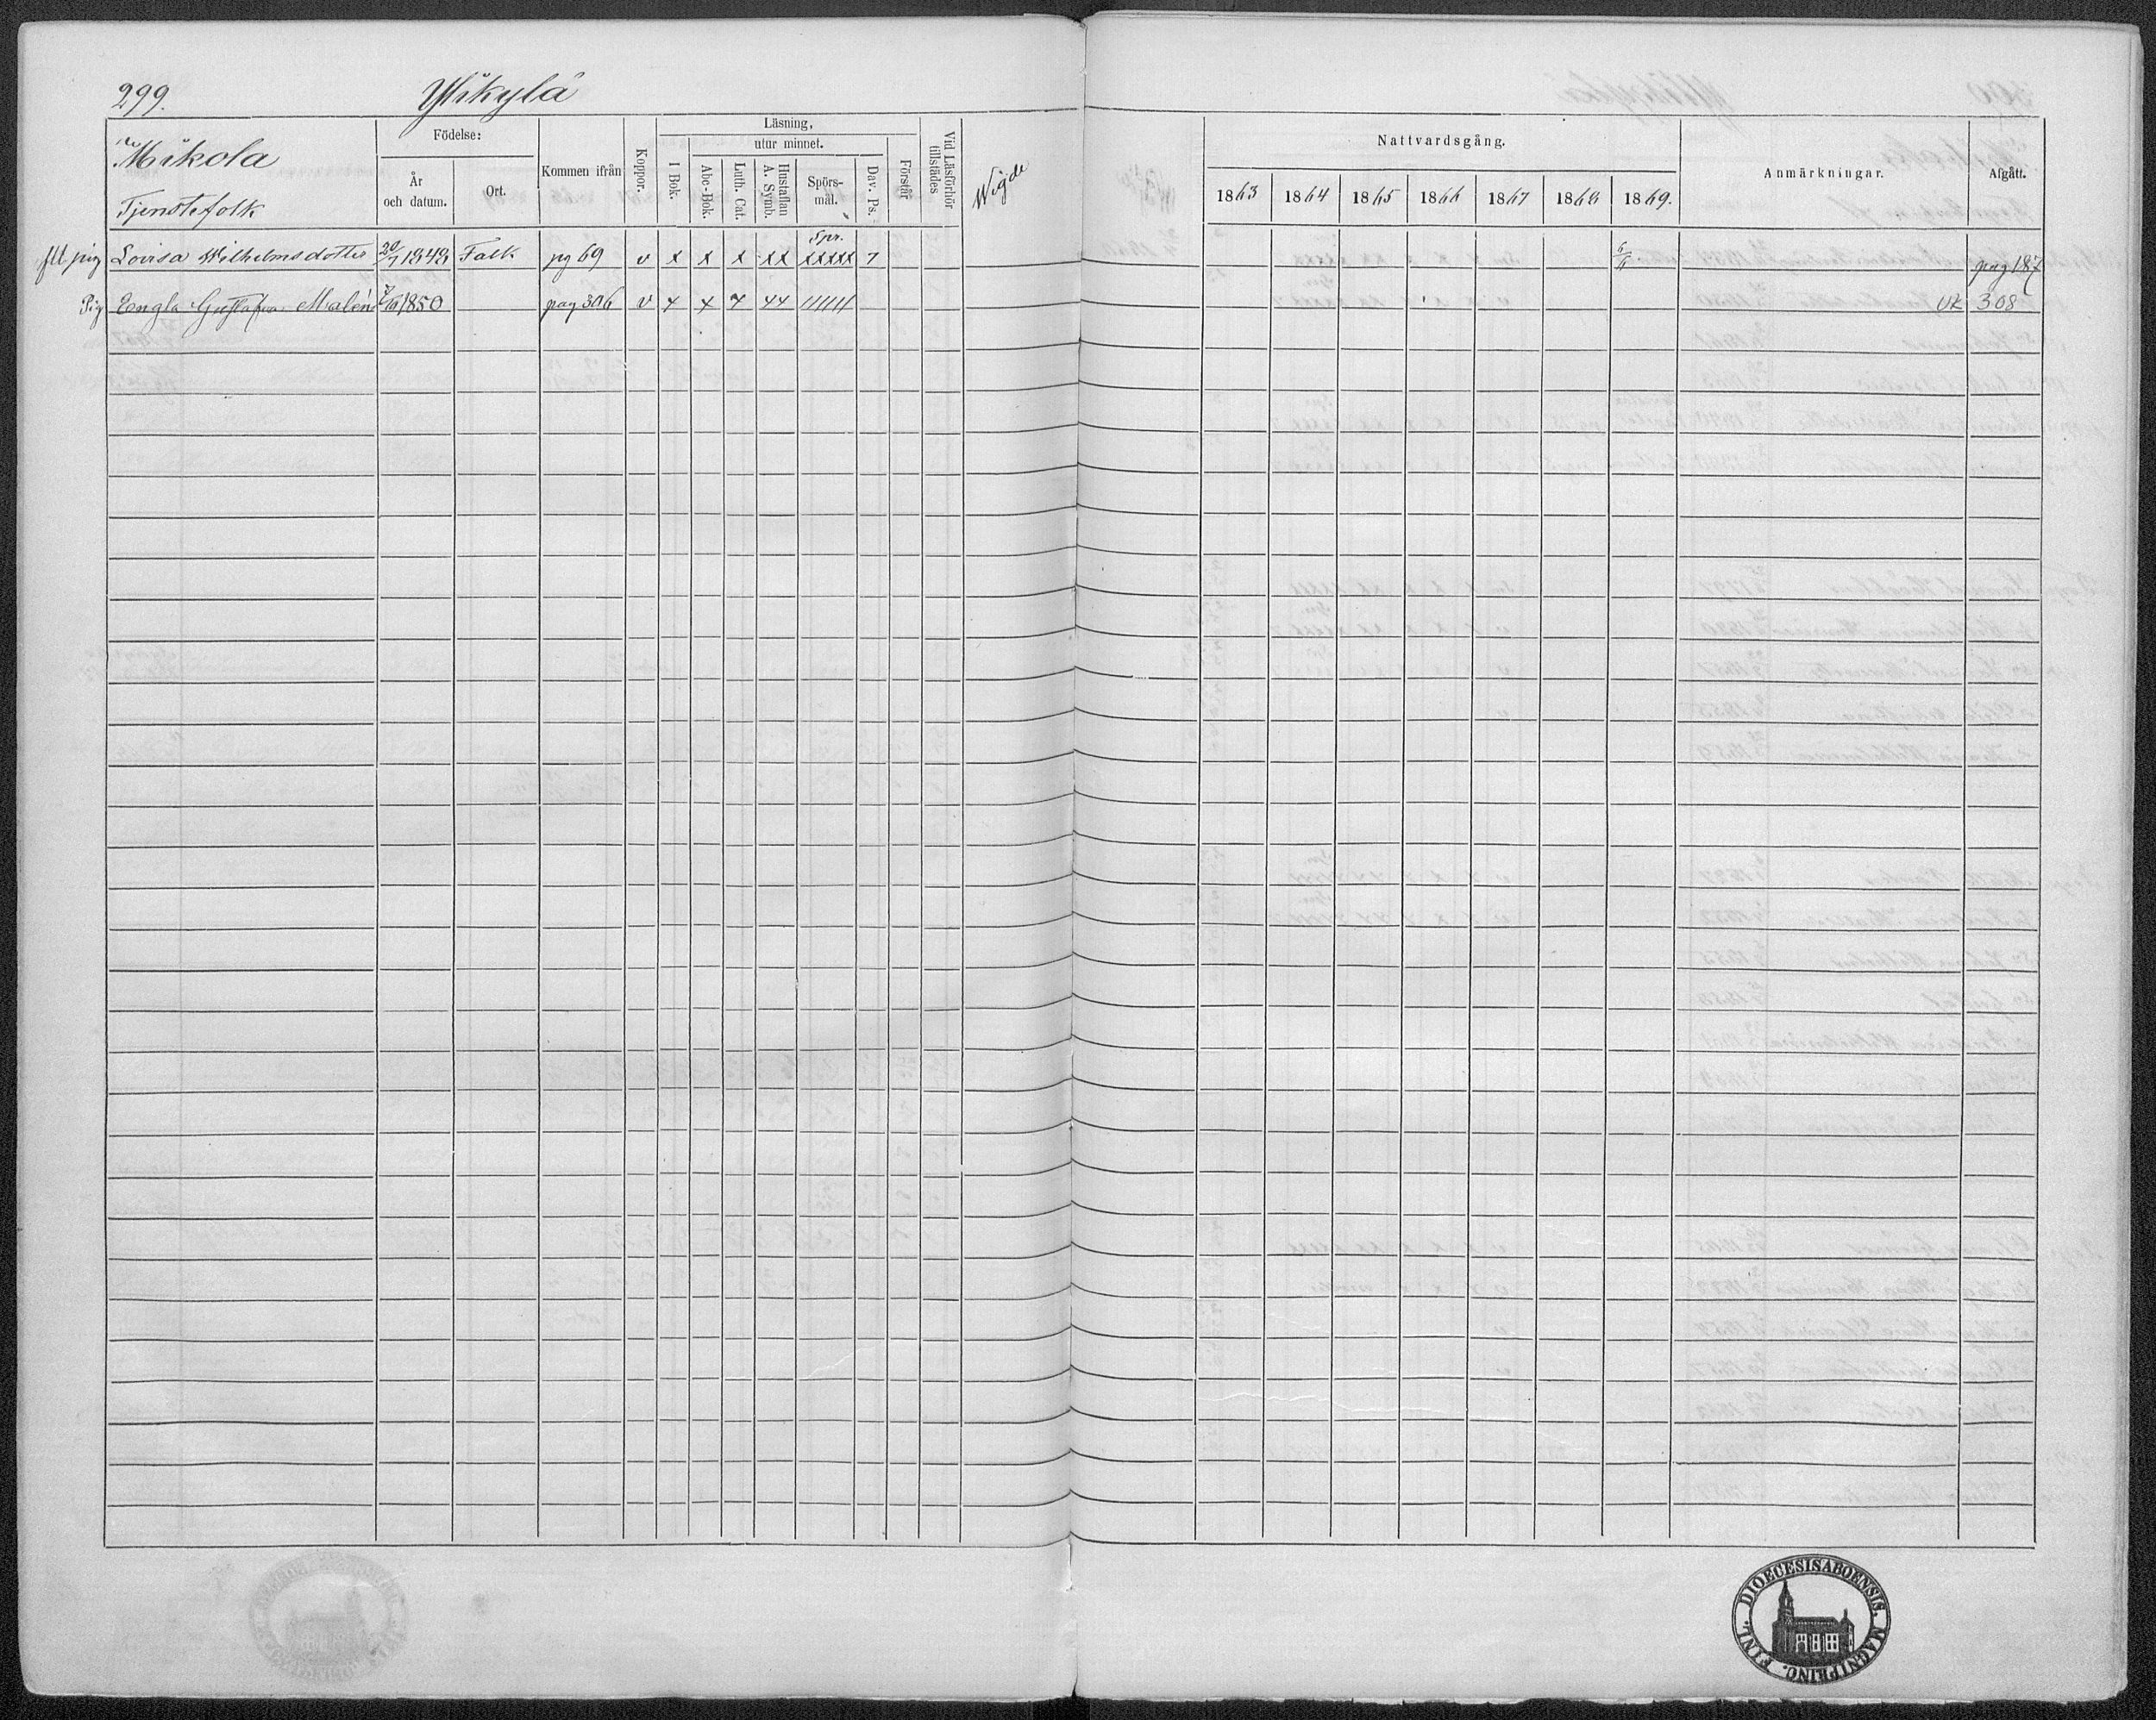 299. Ylikylä
Mikola
Tjenstefolk
Födelse:
År och datum.
Ort.
Kommen ifrån
Koppor.
Läsning,
I Bok.
utur minnet.
Abc-Bok.
Luth. Cat.
Hustaflan A. Symb.
Spörs-mål.
Dav. Ps.
Förstår
Vid Läsförhör tillstädes
Wigde
Nattvardsgång.
1863 1864 1865 1866 1867 1868 1869.
Anmärkningar.
Afgått.
pig Lovisa Wilhelmsdotter 20/7 1848 Falk pg 69 v x x x xx Spr. xxxxx 7 6/11 pag 187
Pig Engla Gustafva Malén 1850 pag 306 v x x 7 xx ///// UK 308
DIOECESIS ABOENSIS. MAGNI PRINC. FINL.